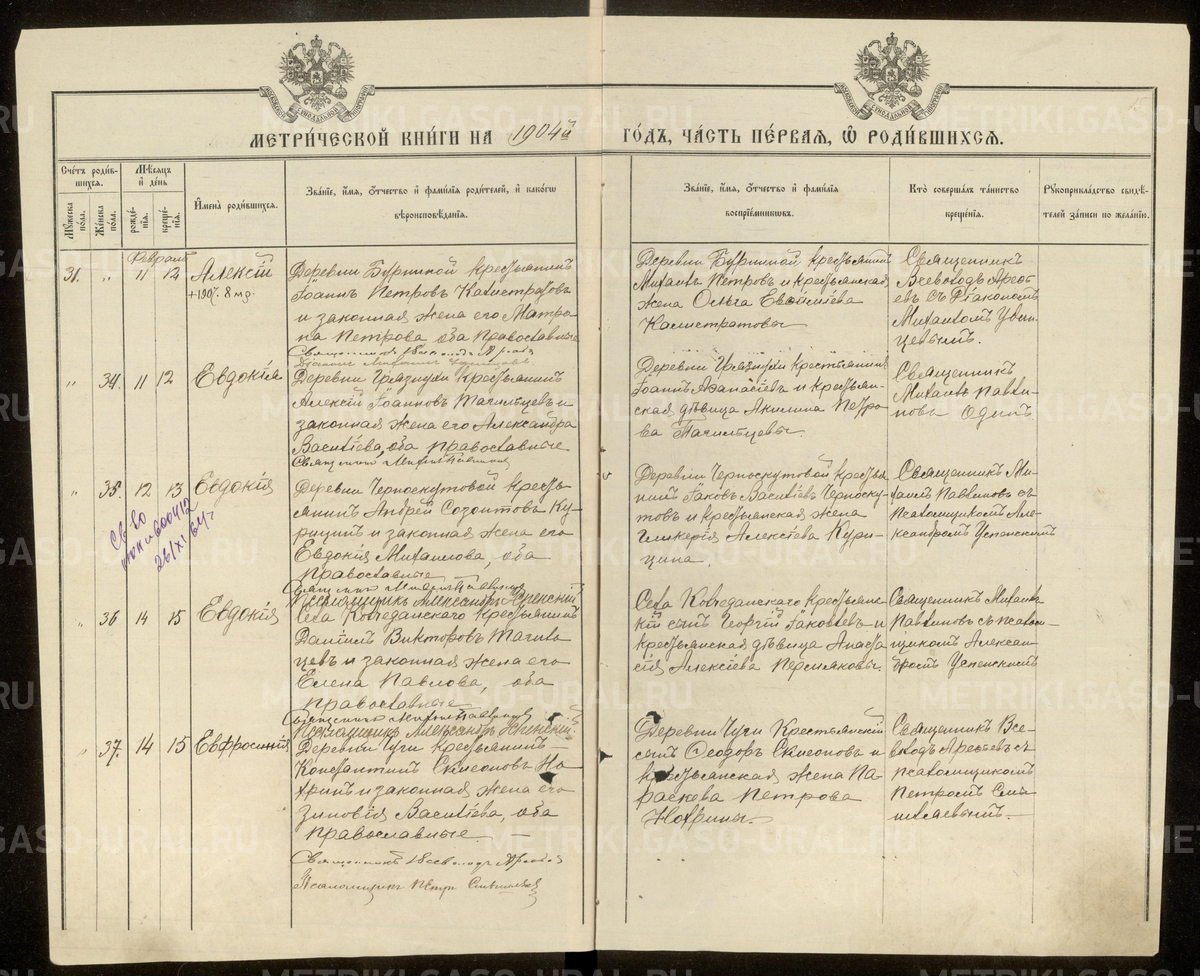 МЕТРИ́ЧЕСКОЙ КНИ́ГИ НА 1904й ГО́ДЪ, ЧА́СТЬ ПЕ́РВАЯ, Ѽ РОДИ́ВШИХСЯ.
Сче́тъ роди́вшихся.
Му́жеска по́ла.
Же́нска по́ла.
Мѣ́сяцъ и де́нь
рожде́нія.
креще́нія.
И҆мена̀ роди́вшихся.
Зва́ніе, и҆́мя, ѻ҆́тчество и҆ фами́лія роди́телей, и҆ како́гѡ
вѣроисповѣ́данія.
Зва́ніе, и҆́мя, ѻ҆́тчество и҆ фами́лія
воспріе́мниковъ.
Кто̀ соверша́лъ та́инство
креще́нія.
Рꙋкоприкла́дство свидѣ́-
телей за́писи по жела́нію.
Февраль
31. " 11 12 Алексій
Деревни Бурниной крестьянинъ
Іоаннъ Петровъ Калистратовъ
и законная жена его Матро
на Петрова оба Православные
Деревни Бурниной крестьянинъ
Михаилъ Петровъ и крестьянская
жена Ольга Евѳиміева
Калистратовы
Священникъ
Всеволодъ Арефь
евъ съ Діакономъ
Михаиломъ
" 34. 11 12 Евдокія
Деревни Грязнухи Крестьянинъ
Алексій Іоанновъ Тагильцевъ и
законная жена его Александра
Васильева, оба православные
Деревни Грязнухи крестьянинъ
Іоаннъ Аѳанасіевъ и крестьян-
ская дѣвица Акилина Петро-
ва Тагильцевы.
Священникъ
Михаилъ Павли-
новъ Одинъ
" 35. 12 13 Евдокія
Св-во
26/XI 64 г.
Деревни Черноскутовой кресть-
янинъ Андрей Созонтовъ Ку-
рицинъ и законная жена его
Евдокія Михаилова, оба
православные
Деревни Черноскутовой крестья
нинъ Іаковъ Васильевъ Черноску-
товъ и крестьянская жена
Гликерія Алексіева Кури-
цина.
Священникъ Ми-
хаилъ Павлиновъ съ
псаломщикомъ Але-
ксандромъ Успенскимъ
Псаломщикъ Александръ Успенскій
" 36 14 15 Евдокія
Села Колчеданскаго крестьянинъ
Даніилъ Викторовъ Тагиль
цевъ и законная жена его
Елена Павлова, оба
православные
Села Колчеданскаго крестьянс-
кій сынъ Георгій Іаковлевъ и
крестьянская дѣвица Анаста
сія Алексіева Пермяковы
Священникъ Михаилъ
Павлиновъ съ псалом-
щикомъ Алексан-
дромъ Успенскимъ
Псаломщикъ Александръ Успенскій
" 37. 14 15 Евфросинія
Деревни Чуги крестьянинъ
Константинъ Симеоновъ Но-
хринъ и законная жена его
Зиновія Васильева, оба
православные
Деревни Чуги Крестьянскій
сынъ Ѳеодоръ Симеоновъ и
крестьянская жена Па-
раскева Петрова
Нохрины.
Священникъ Все-
володъ Арефьевъ съ
псаломщикомъ
Петромъ
Священникъ Всеволодъ Арефьевъ
Псаломщикъ Петръ
METRIKI.GASO-URAL.RU